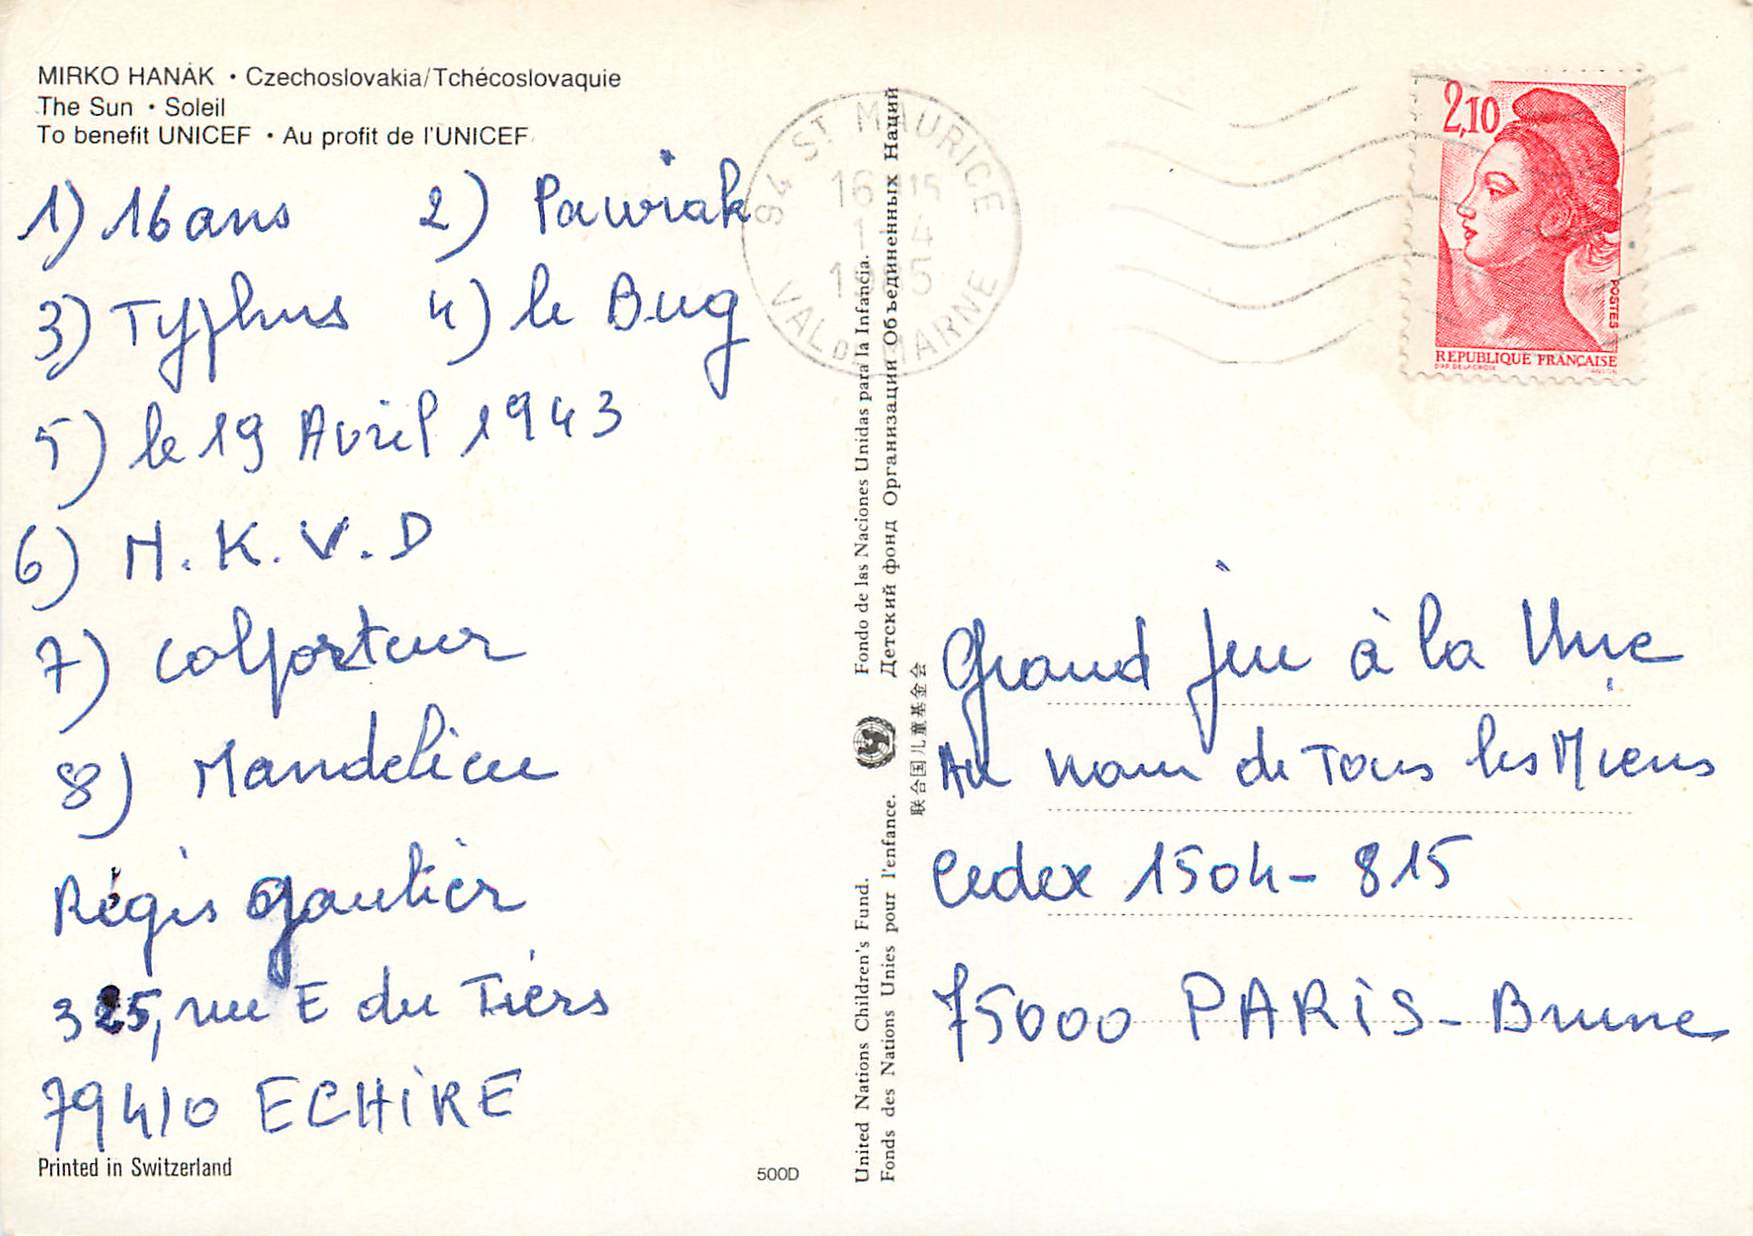 MIRKO HANÁK • Czechoslovakia/Tchécoslovaquie
The Sun • Soleil
To benefit UNICEF • Au profit de l'UNICEF
1) 16 ans 2) Pawiak
3) Typhus 4) le Bug
5) le 19 Avril 1943
6) N.K.V.D
7) colporteur
8) Mandelieu
Régis Gautier
325, rue E du Tiers
79410 ECHIRE
Printed in Switzerland
500D
United Nations Children's Fund. Fondo de las Naciones Unidas para la Infancia.
Fonds des Nations Unies pour l'enfance. Детский фонд Организации Объединенных Наций
联合国儿童基金会
94 ST MAURICE
16 H 15
1-4
1985
VAL DE MARNE
2,10
POSTES
REPUBLIQUE FRANÇAISE
D'AP. DELACROIX GANDON
Grand jeu à la Une
Au nom de Tous les Miens
Cedex 1504-815
75000 PARIS-Brune